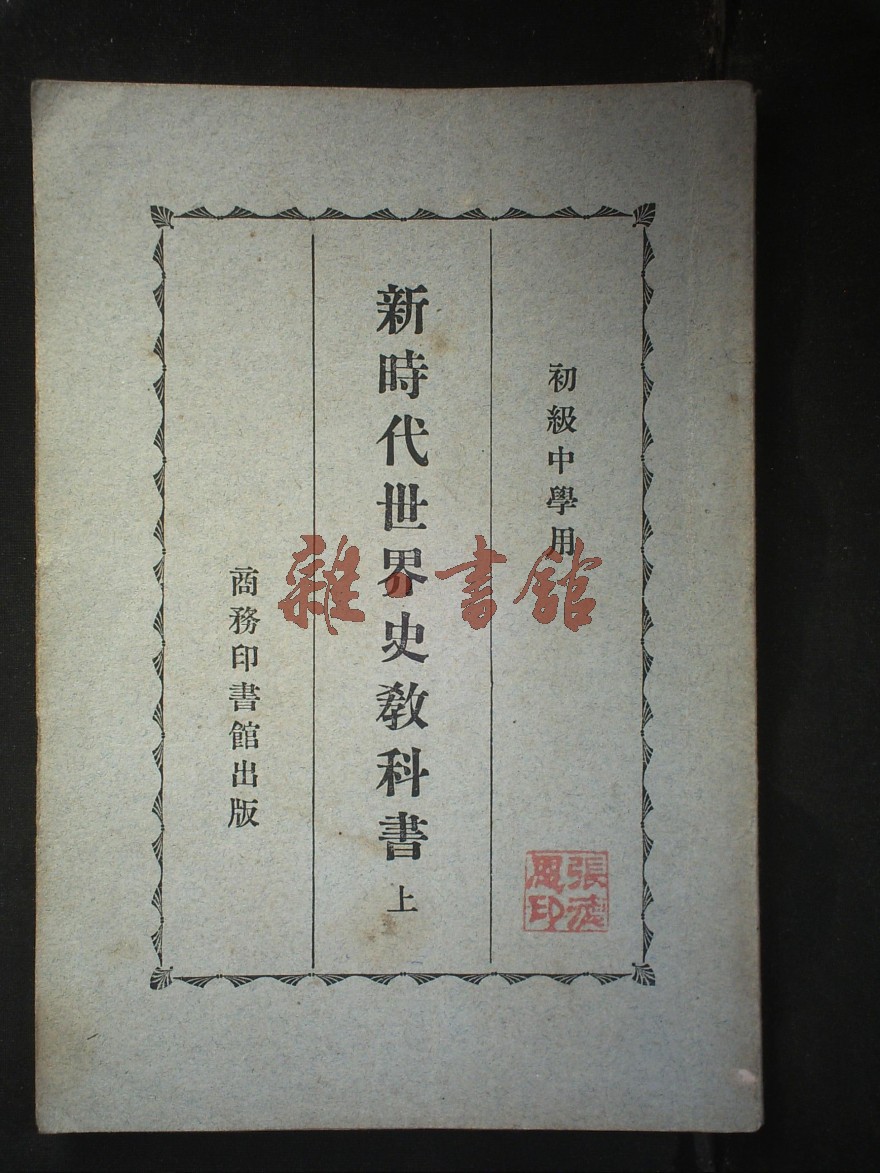 初級中學用
新時代世界史教科書 上
商務印書館出版
雜·書館